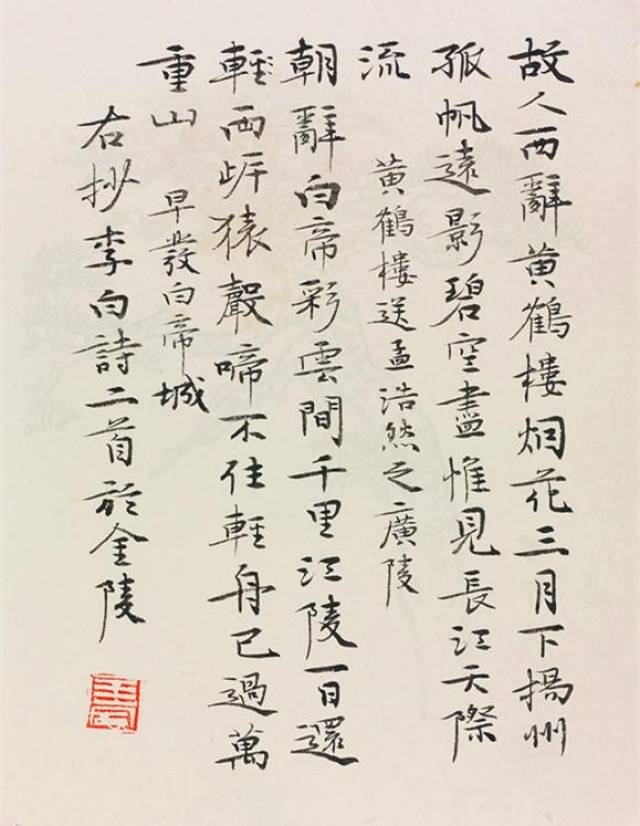 故人西辭黄鶴樓烟花三月下揚州
孤帆遠影碧空盡惟見長江天際
流 黄鶴樓送孟浩然之廣陵
朝辭白帝彩雲間千里江陵一日還
輕两岸猿聲啼不住輕舟已過萬
重山 早發白帝城
右抄李白詩二首於金陵